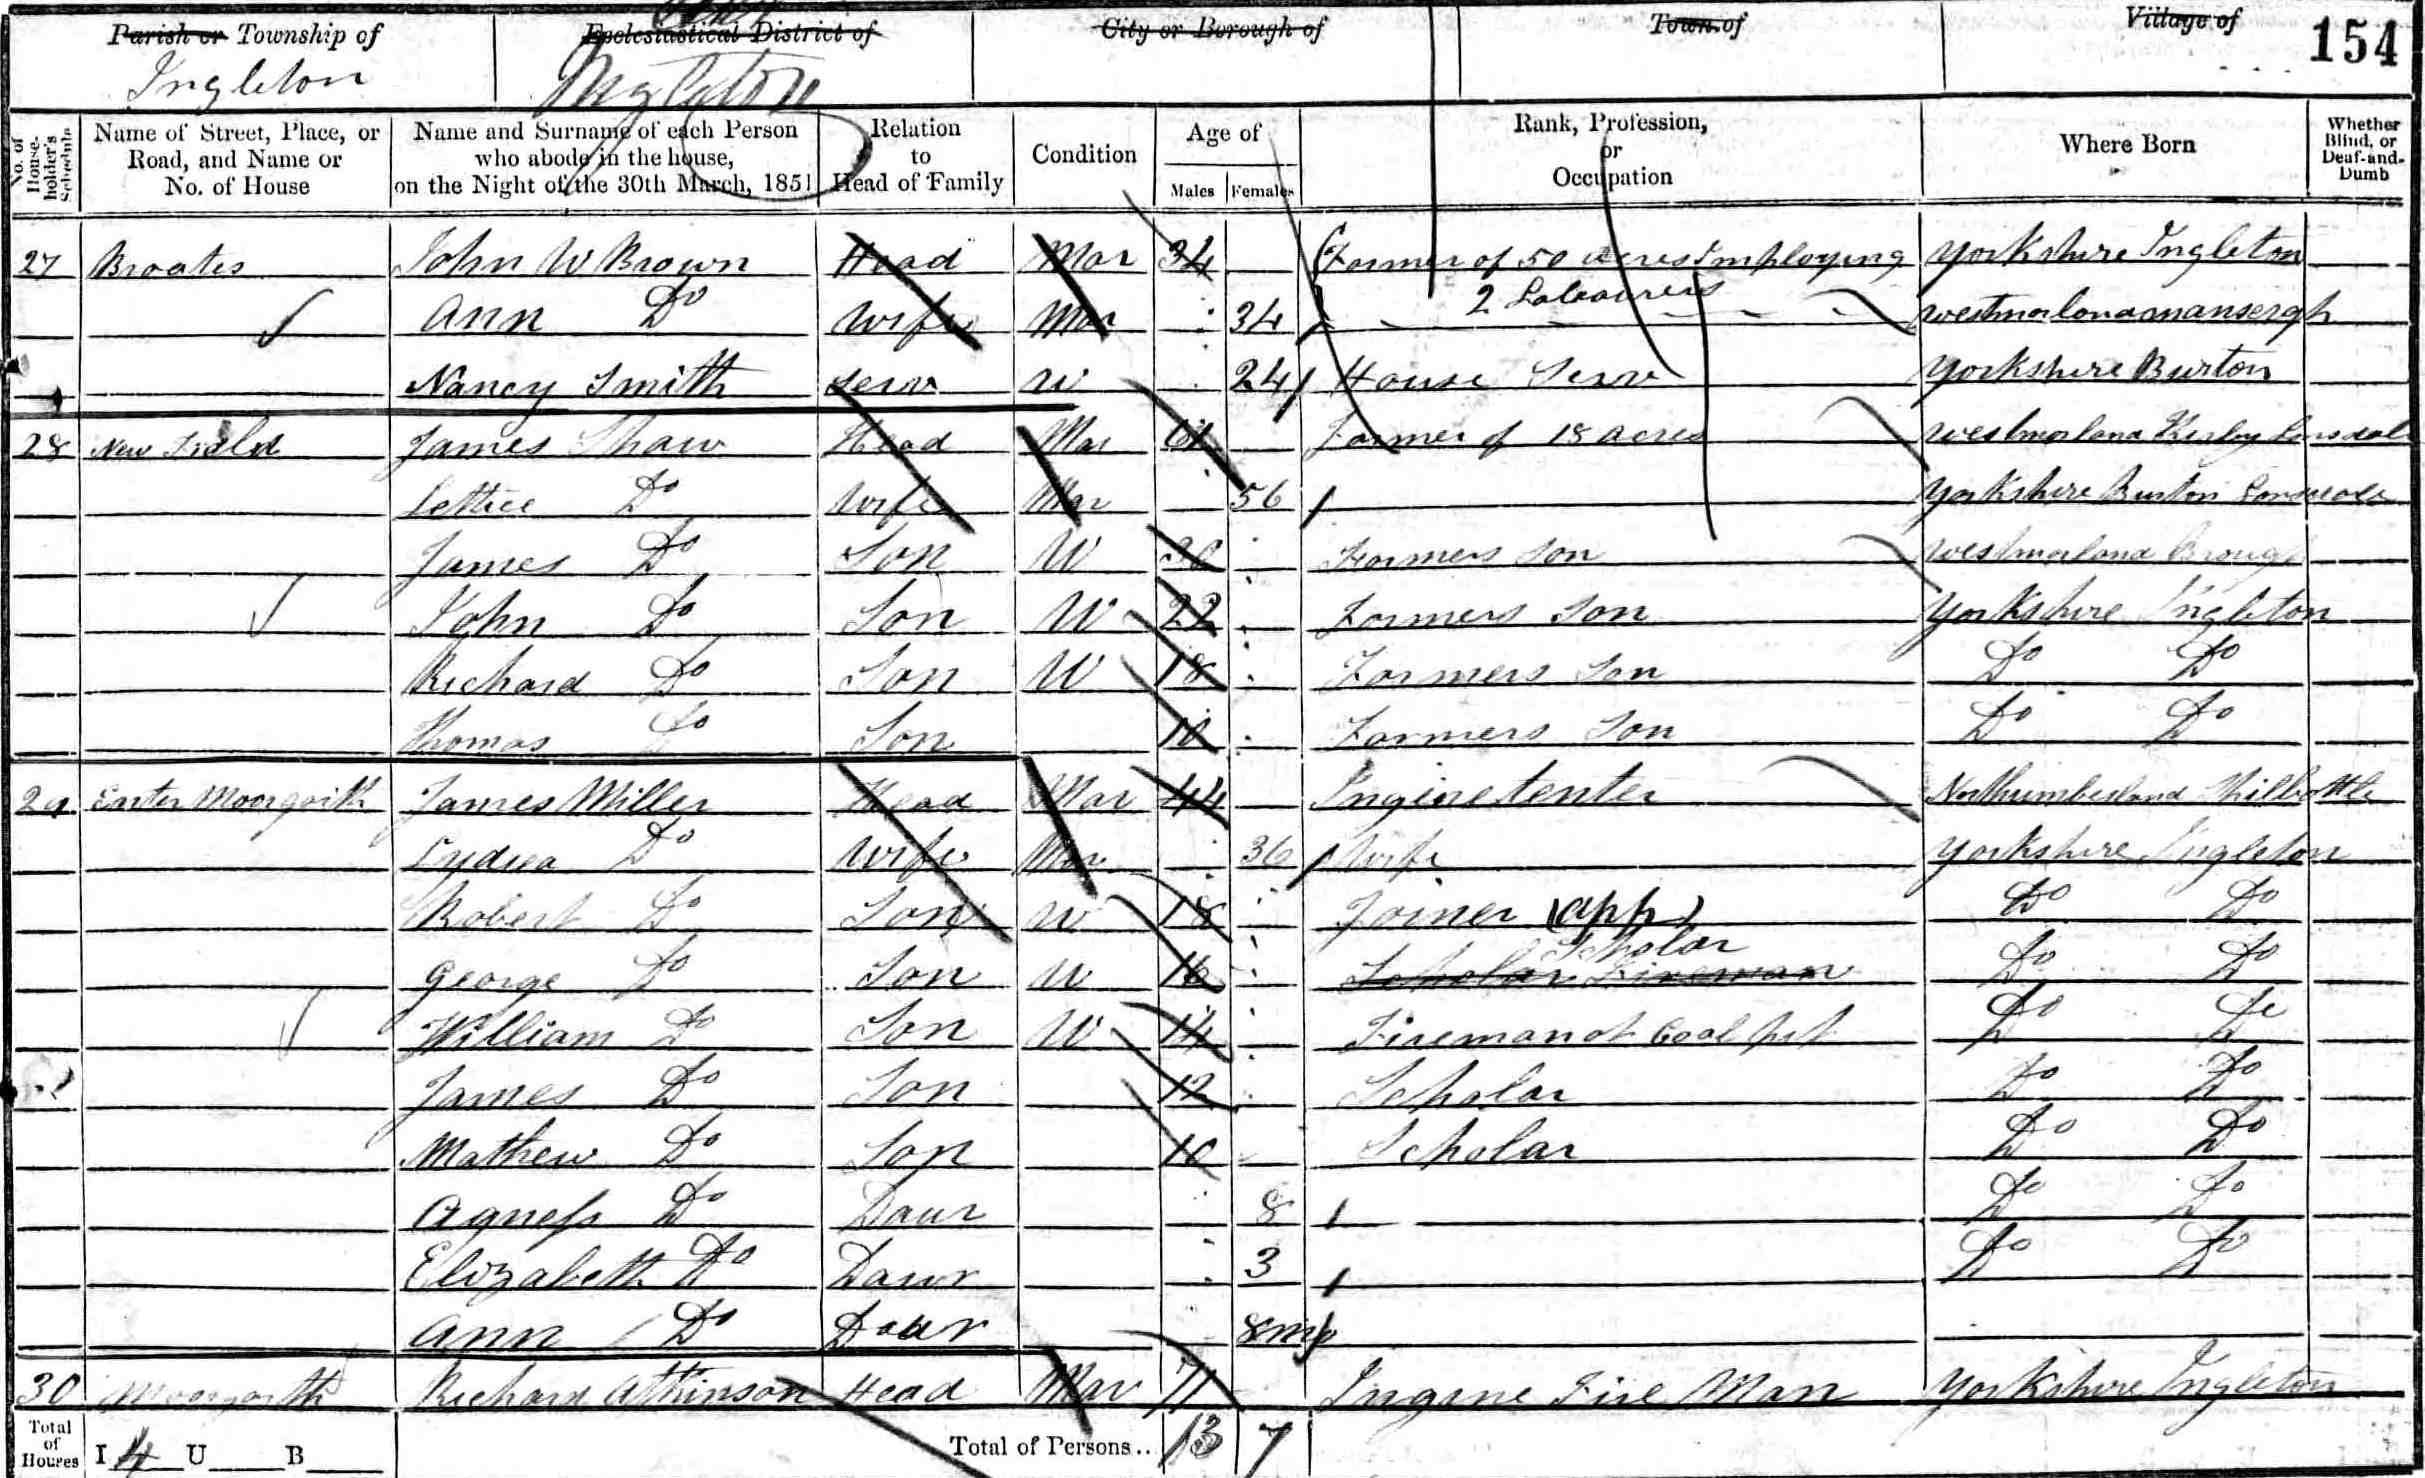 Parish or Township of Ecclesiastical District of City or Borough of Town of Village of 154
Ingleton Ingleton
No. of House-holder's Schedule | Name of Street, Place, or Road, and Name or No. of House | Name and Surname of each Person who abode in the house, on the Night of the 30th March, 1851 | Relation to Head of Family | Condition | Age of Males Females | Rank, Profession, or Occupation | Where Born | Whether Blind, or Deaf-and-Dumb
27 Broates John W Brown Head Mar 34 Farmer of 50 acres Imploying Yorkshire Ingleton
Ann Do Wife Mar 34 2 Labourers Westmorland Mansergh
Nancy Smith Serv U 24 House Serv Yorkshire Burton
28 New Field James Shaw Head Mar 61 Farmer of 18 acres Westmorland Kirby Lonsdale
Lettice Do Wife Mar 56 Yorkshire Burton Lonsdale
James Do Son U 30 Farmers Son Westmorland Brough
John Do Son U 22 Farmers Son Yorkshire Ingleton
Richard Do Son U 18 Farmers Son Do Do
Thomas Do Son Farmers Son Do Do
29 Enter Moorgarth James Miller Head Mar 44 Ingine tenter Northumberland Shilbottle
Lydia Do Wife Mar 36 Wife Yorkshire Ingleton
Robert Do Son U 18 Joiner (app) Do Do
Scholar
George Do Son U 16 Scholar Fireman Do Do
William Do Son U 14 Fireman at Coal pit Do Do
James Do Son 12 Scholar Do Do
Mathew Do Son 10 Scholar Do Do
Agness Do Daur 8 Do Do
Elizabeth Do Daur 3 Do Do
Ann Do Daur 8 m
30 Moorgarth Richard Atkinson Head Mar 71 Ingine Fire Man Yorkshire Ingleton
Total of Houses I 4 U B Total of Persons.. 13 7